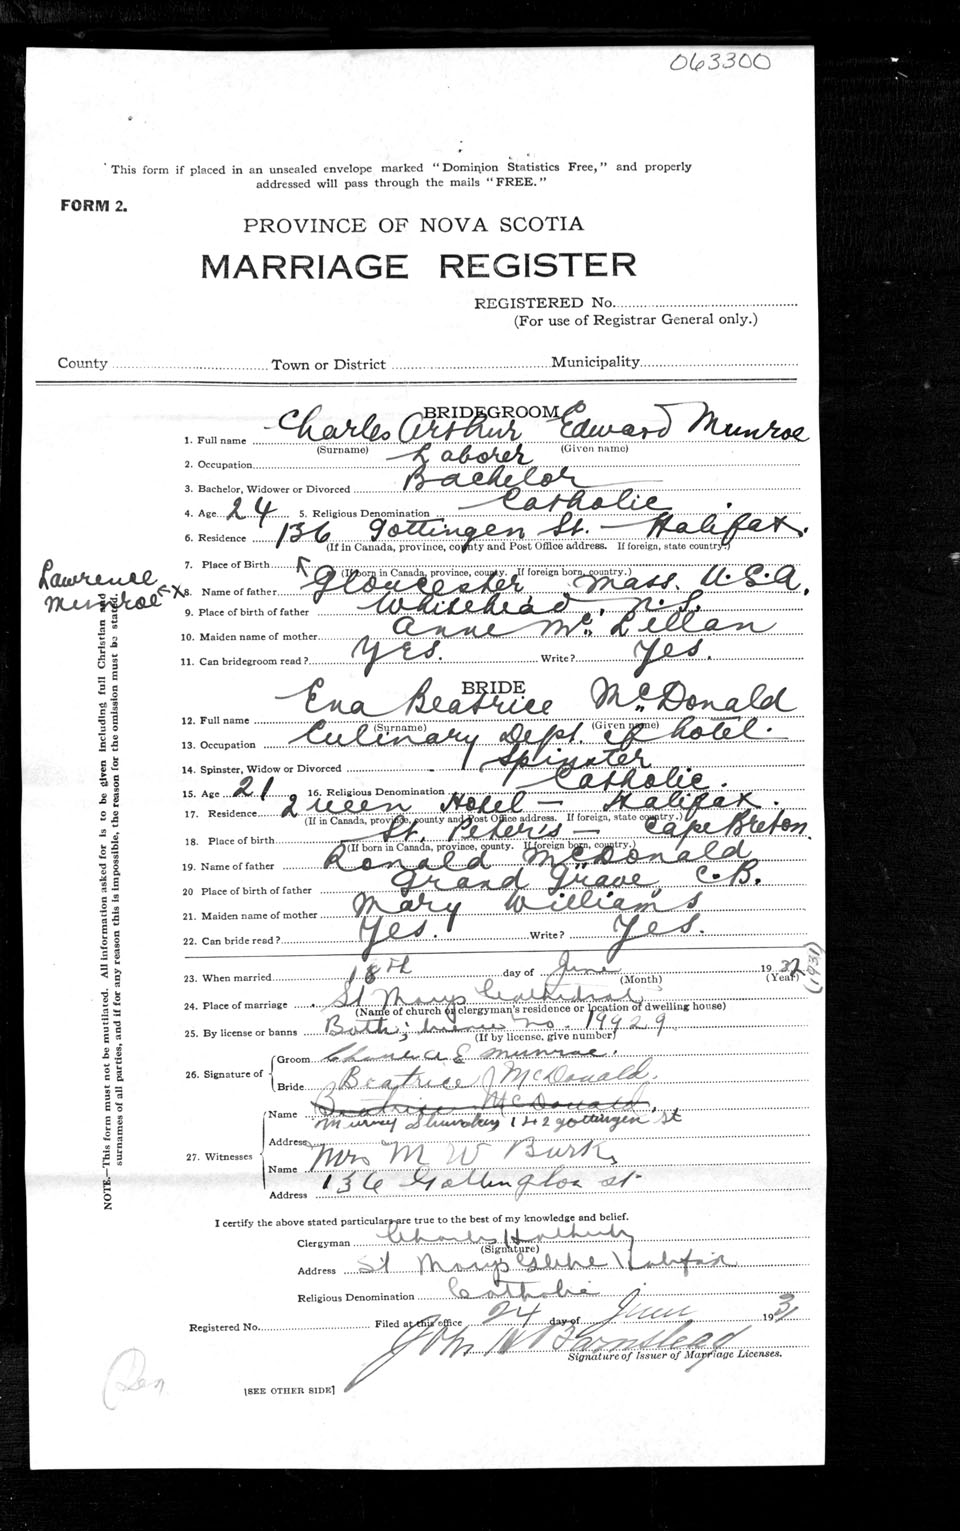 063300
This form if placed in an unsealed envelope marked "Dominion Statistics Free," and properly
addressed will pass through the mails "FREE."
FORM 2.
PROVINCE OF NOVA SCOTIA
MARRIAGE REGISTER
REGISTERED No.
(For use of Registrar General only.)
County Town or District Municipality
BRIDEGROOM
1. Full name Charles Arthur Edward Munroe
(Surname) (Given name)
2. Occupation Laborer
3. Bachelor, Widower or Divorced Bachelor
4. Age 24 5. Religious Denomination Catholic
6. Residence 136 Gottingen St. - Halifax.
(If in Canada, province, county and Post Office address. If foreign, state country.)
7. Place of Birth
(If born in Canada, province, county. If foreign born, country.)
Gloucester Mass. U.S.A.
Lawrence Munroe X
8. Name of father
9. Place of birth of father Whitehead, N.S.
10. Maiden name of mother Anne McLellan
11. Can bridegroom read? Yes. Write? Yes.
BRIDE
12. Full name Ena Beatrice McDonald
(Surname) (Given name)
13. Occupation Culinary Dept. of hotel.
14. Spinster, Widow or Divorced Spinster
15. Age 21 16. Religious Denomination Catholic.
17. Residence Queen Hotel - Halifax.
(If in Canada, province, county and Post Office address. If foreign, state country.)
18. Place of birth St. Peter's - Cape Breton.
(If born in Canada, province, county. If foreign born, country.)
19. Name of father Ronald McDonald
20 Place of birth of father Grand Grave C.B.
21. Maiden name of mother Mary Williams
22. Can bride read? Yes. Write? Yes.
23. When married 18th day of June 1932 (1931)
(Month) (Year)
24. Place of marriage St Marys Cathedral
(Name of church or clergyman's residence or location of dwelling house)
25. By license or banns Both; license no. 19929
(If by license, give number)
26. Signature of Groom Charles E Munroe.
Bride Beatrice McDonald.
27. Witnesses Name Beatrice McDonald,
Murray 142 Gottingen St
Address
Name Mrs M W Burk
Address 136 Gottingen St
I certify the above stated particulars are true to the best of my knowledge and belief.
Clergyman Charles
(Signature)
Address St Marys Glebe Halifax
Religious Denomination Catholic
Registered No. Filed at this office 24 day of June 1931
John H Barnstead
Signature of Issuer of Marriage Licenses.
[SEE OTHER SIDE]
NOTE.—This form must not be mutilated. All information asked for is to be given including full Christian and
surnames of all parties, and if for any reason this is impossible, the reason for the omission must be stated.